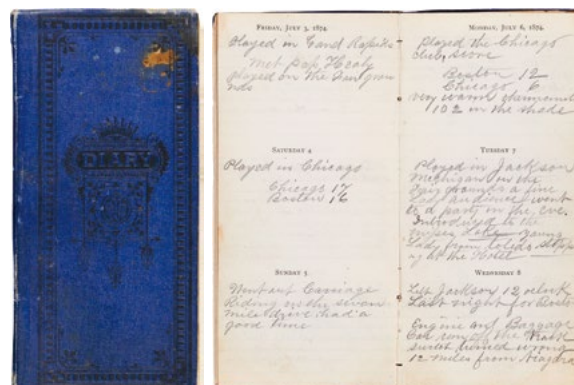 DIARY
FRIDAY, JULY 3, 1874.
Played in Gand Rapids
Met Pap Healy
played on the Fair grou
nds
SATURDAY 4
Played in Chicago
Chicago 17
Boston 16
SUNDAY 5
Went out Carriage
Riding on the seven
mile drive had a
good time
MONDAY, JULY 6, 1874.
Played the Chicago
club, score
Boston 12
Chicago 6
very warm thermomet
102 in the shade
TUESDAY 7
Played in Jackson
Michigan on the
Fair grounds a fine
Lady audience went
to a party in the Eve.
Introduced to the
misses Lake young
Lady from Toledo stopp
ing at the Hotel
WEDNESDAY 8
Left Jackson 12 oclock
Last night for Bost
Engine and Baggage
Car run off the Track
switch turned wrong
12 miles from Niagara